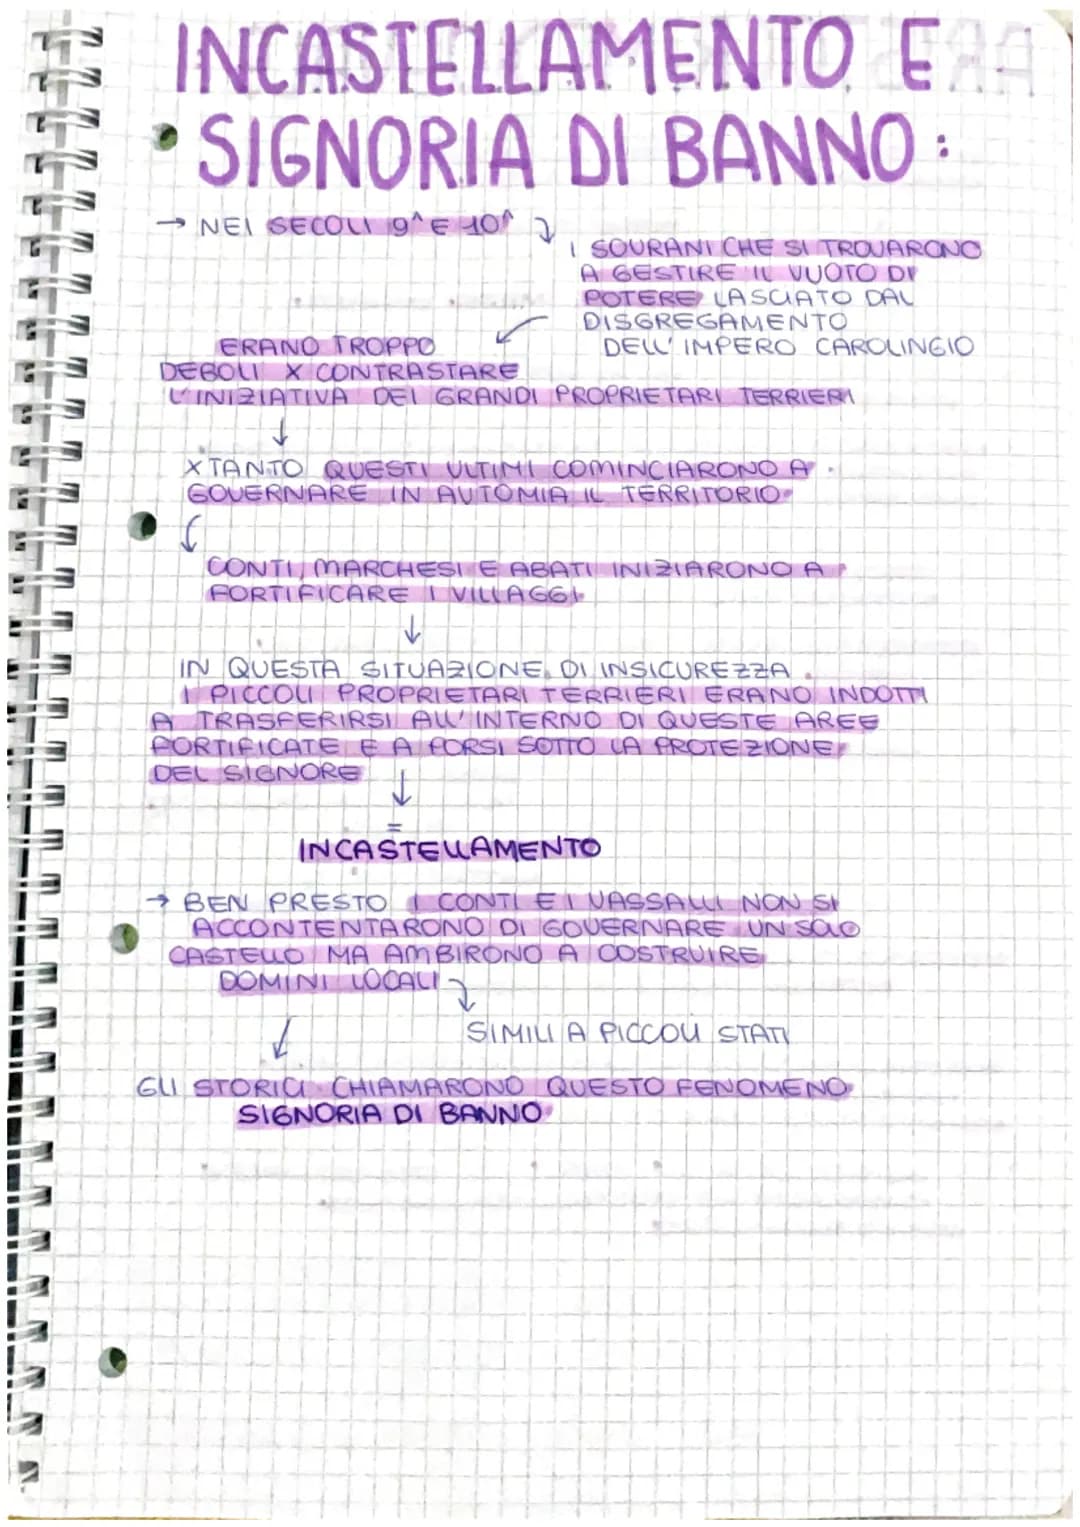 INCASTELLAMENTO E
SIGNORIA DI BANNO:
→ NEI SECOLI 9^ E 10^
I SOVRANI CHE SI TROVARONO
A GESTIRE IL VUOTO DI
POTERE LASCIATO DAL
DISGREGAMENTO
DELL'IMPERO CAROLINGIO
ERANO TROPPO
DEBOLI X CONTRASTARE
L'INIZIATIVA DEI GRANDI PROPRIETARI TERRIERI
XTANTO QUESTI ULTIMI COMINCIARONO A
GOVERNARE IN AUTOMIA IL TERRITORIO
CONTI, MARCHESI E ABATI INIZIARONO A
FORTIFICARE I VILLAGGI
IN QUESTA SITUAZIONE DI INSICUREZZA
I PICCOLI PROPRIETARI TERRIERI ERANO INDOTTI
A TRASFERIRSI ALL'INTERNO DI QUESTE AREE
FORTIFICATE E A PORSI SOTTO LA PROTEZIONE
DEL SIGNORE
=
INCASTELLAMENTO
→ BEN PRESTO I CONTI E I VASSALLI NON SI
ACCONTENTARONO DI GOVERNARE UN SOLO
CASTELLO MA AMBIRONO A COSTRUIRE
DOMINI LOCALI
SIMILI A PICCOLI STATI
GLI STORICI CHIAMARONO QUESTO FENOMENO
SIGNORIA DI BANNO